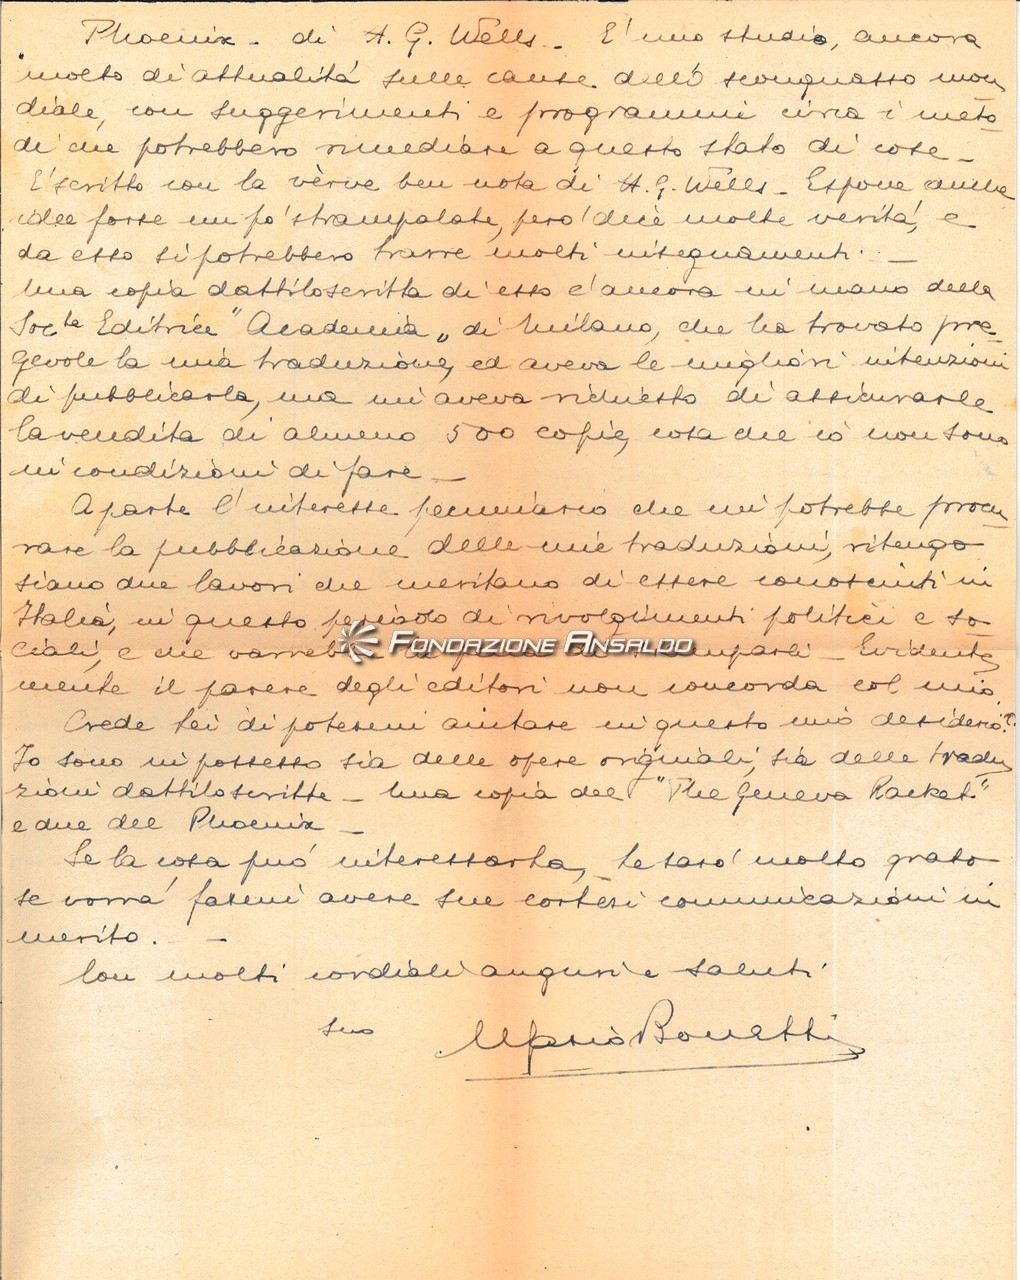 Phoenix - di H. G. Wells - E' uno studio, ancora
molto di attualitá sulle cause dello sconquasso mon
diale, con suggerimenti e programmi circa i meto-
di che potrebbero rimediare a questo stato di cose -
E' scritto con la vèrve ben nota di H. G. Wells - Espone anche
idee forse un po' strampalate, però dice molte veritá, e
da esso si potrebbero trarre molti insegnamenti. -
Una copia dattiloscritta di esso è ancora in mano della
Soc.tà Editrice "Academia" di Milano, che ha trovato pre-
gevole la mia traduzione, ed aveva le migliori intenzioni
di pubblicarla, ma mi aveva richiesto di assicurarle
la vendita di almeno 500 copie, cosa che io non sono
in condizioni di fare -
A parte l'interesse pecuniario che mi potrebbe procu-
rare la pubblicazione delle mie traduzioni, ritengo
siano due lavori che meritano di essere conosciuti in
Italia, in questo periodo di rivolgimenti politici e so-
ciali, e che varrebbe la pena di stamparli - Evidente
mente il parere degli editori non concorda col mio.
Crede Lei di potermi aiutare in questo mio desiderio?
Io sono in possesso sia delle opere originali, sia delle tradu
zioni dattiloscritte - Una copia del "The Geneva Racket"
e due del Phoenix -
Se la cosa può interessarla, le sarò molto grato
se vorrá farmi avere sue cortesi comunicazioni in
merito. -
Con molti cordiali auguri e saluti
suo Mario Bonetti
Fondazione Ansaldo